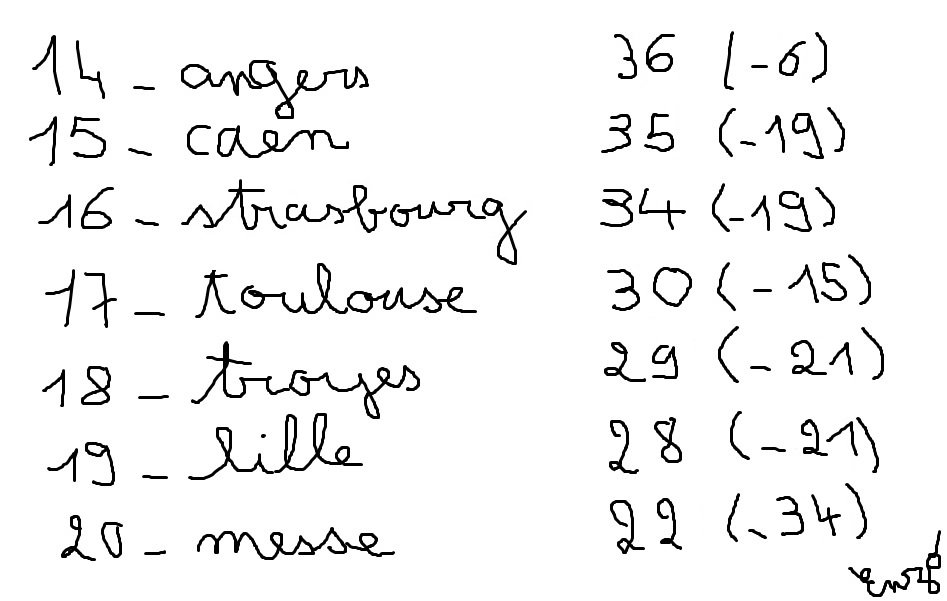 14 - angers 36 (-6)
15 - caen 35 (-19)
16 - strasbourg 34 (-19)
17 - toulouse 30 (-15)
18 - troyes 29 (-21)
19 - lille 28 (-21)
20 - messe 22 (-34)